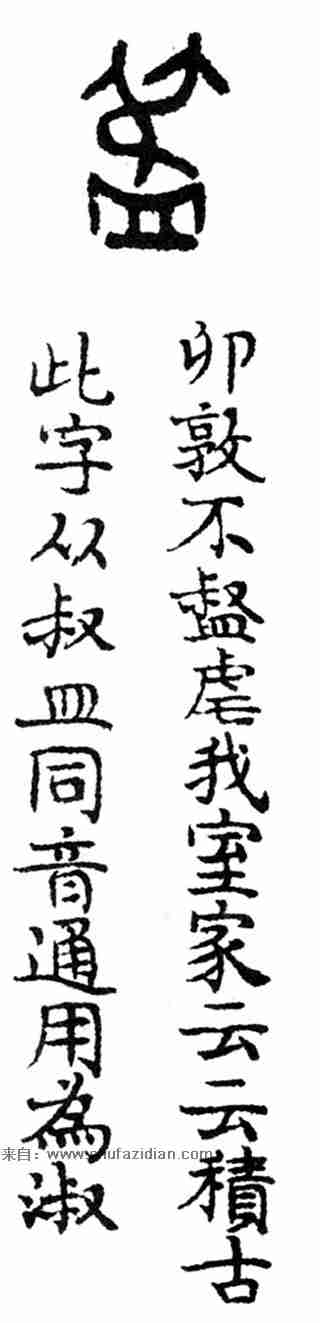 卯敦不盭虐我室家云云積古
此字从叔皿同音通用為淑
来自:www.shufazidian.com